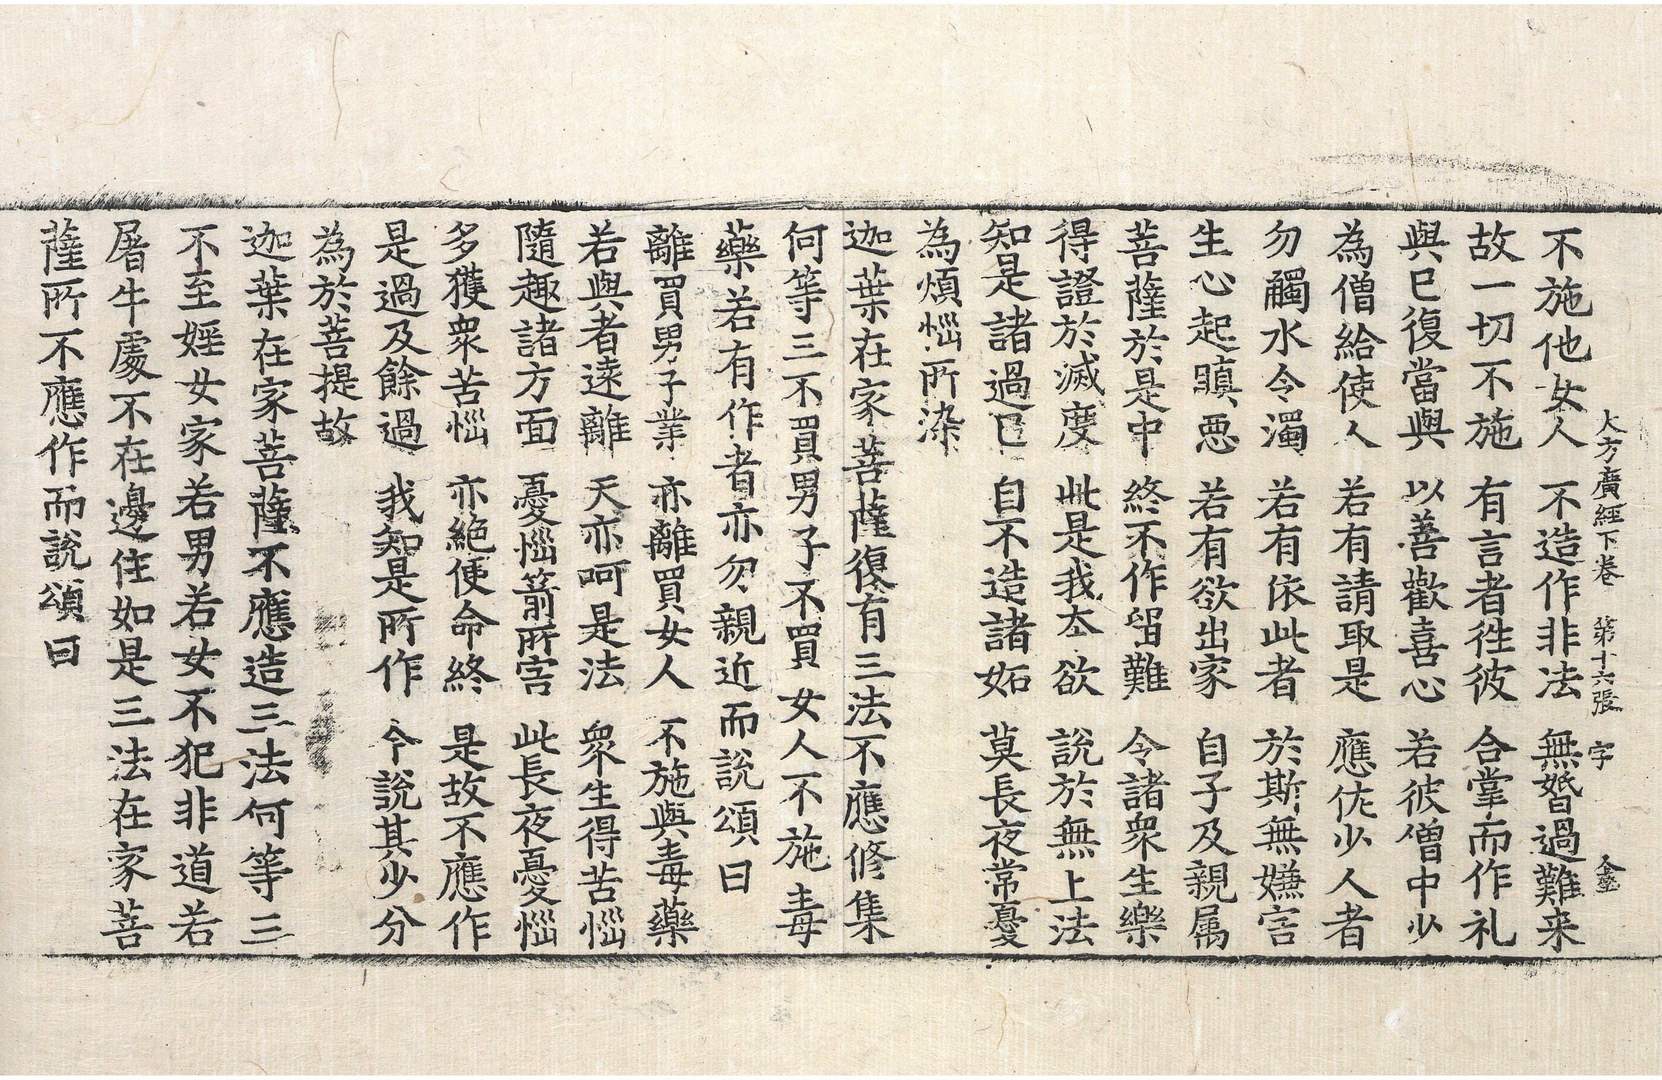 大方廣經下卷　第十六張　字
不施他女人　不造作非法　無婚過難来
故一切不施　有言者徃彼　合掌而作礼
與已復當與　以善歡喜心　若彼僧中少
為僧給使人　若有請取是　應佐少人者
勿觸水令濁　若有依此者　於斯無嫌害
生心起瞋惡　若有欲出家　自子及親属
菩薩於是中　終不作留難　令諸衆生樂
得證於滅度　此是我本欲　說於無上法
知是諸過已　自不造諸妬　莫長夜常憂
為煩惱所染
迦葉在家菩薩復有三法不應修集
何等三不買男子不買女人不施毒
藥若有作者亦勿親近而說頌曰
離買男子業　亦離買女人　不施與毒藥
若與者遠離　天亦呵是法　衆生得苦惱
隨趣諸方面　憂惱箭所害　此長夜憂惱
多獲衆苦惱　亦絕便命終　是故不應作
是過及餘過　我知是所作　今說其少分
為於菩提故
迦葉在家菩薩不應造三法何等三
不至婬女家若男若女不犯非道若
屠牛處不在邊住如是三法在家菩
薩所不應作而說頌曰